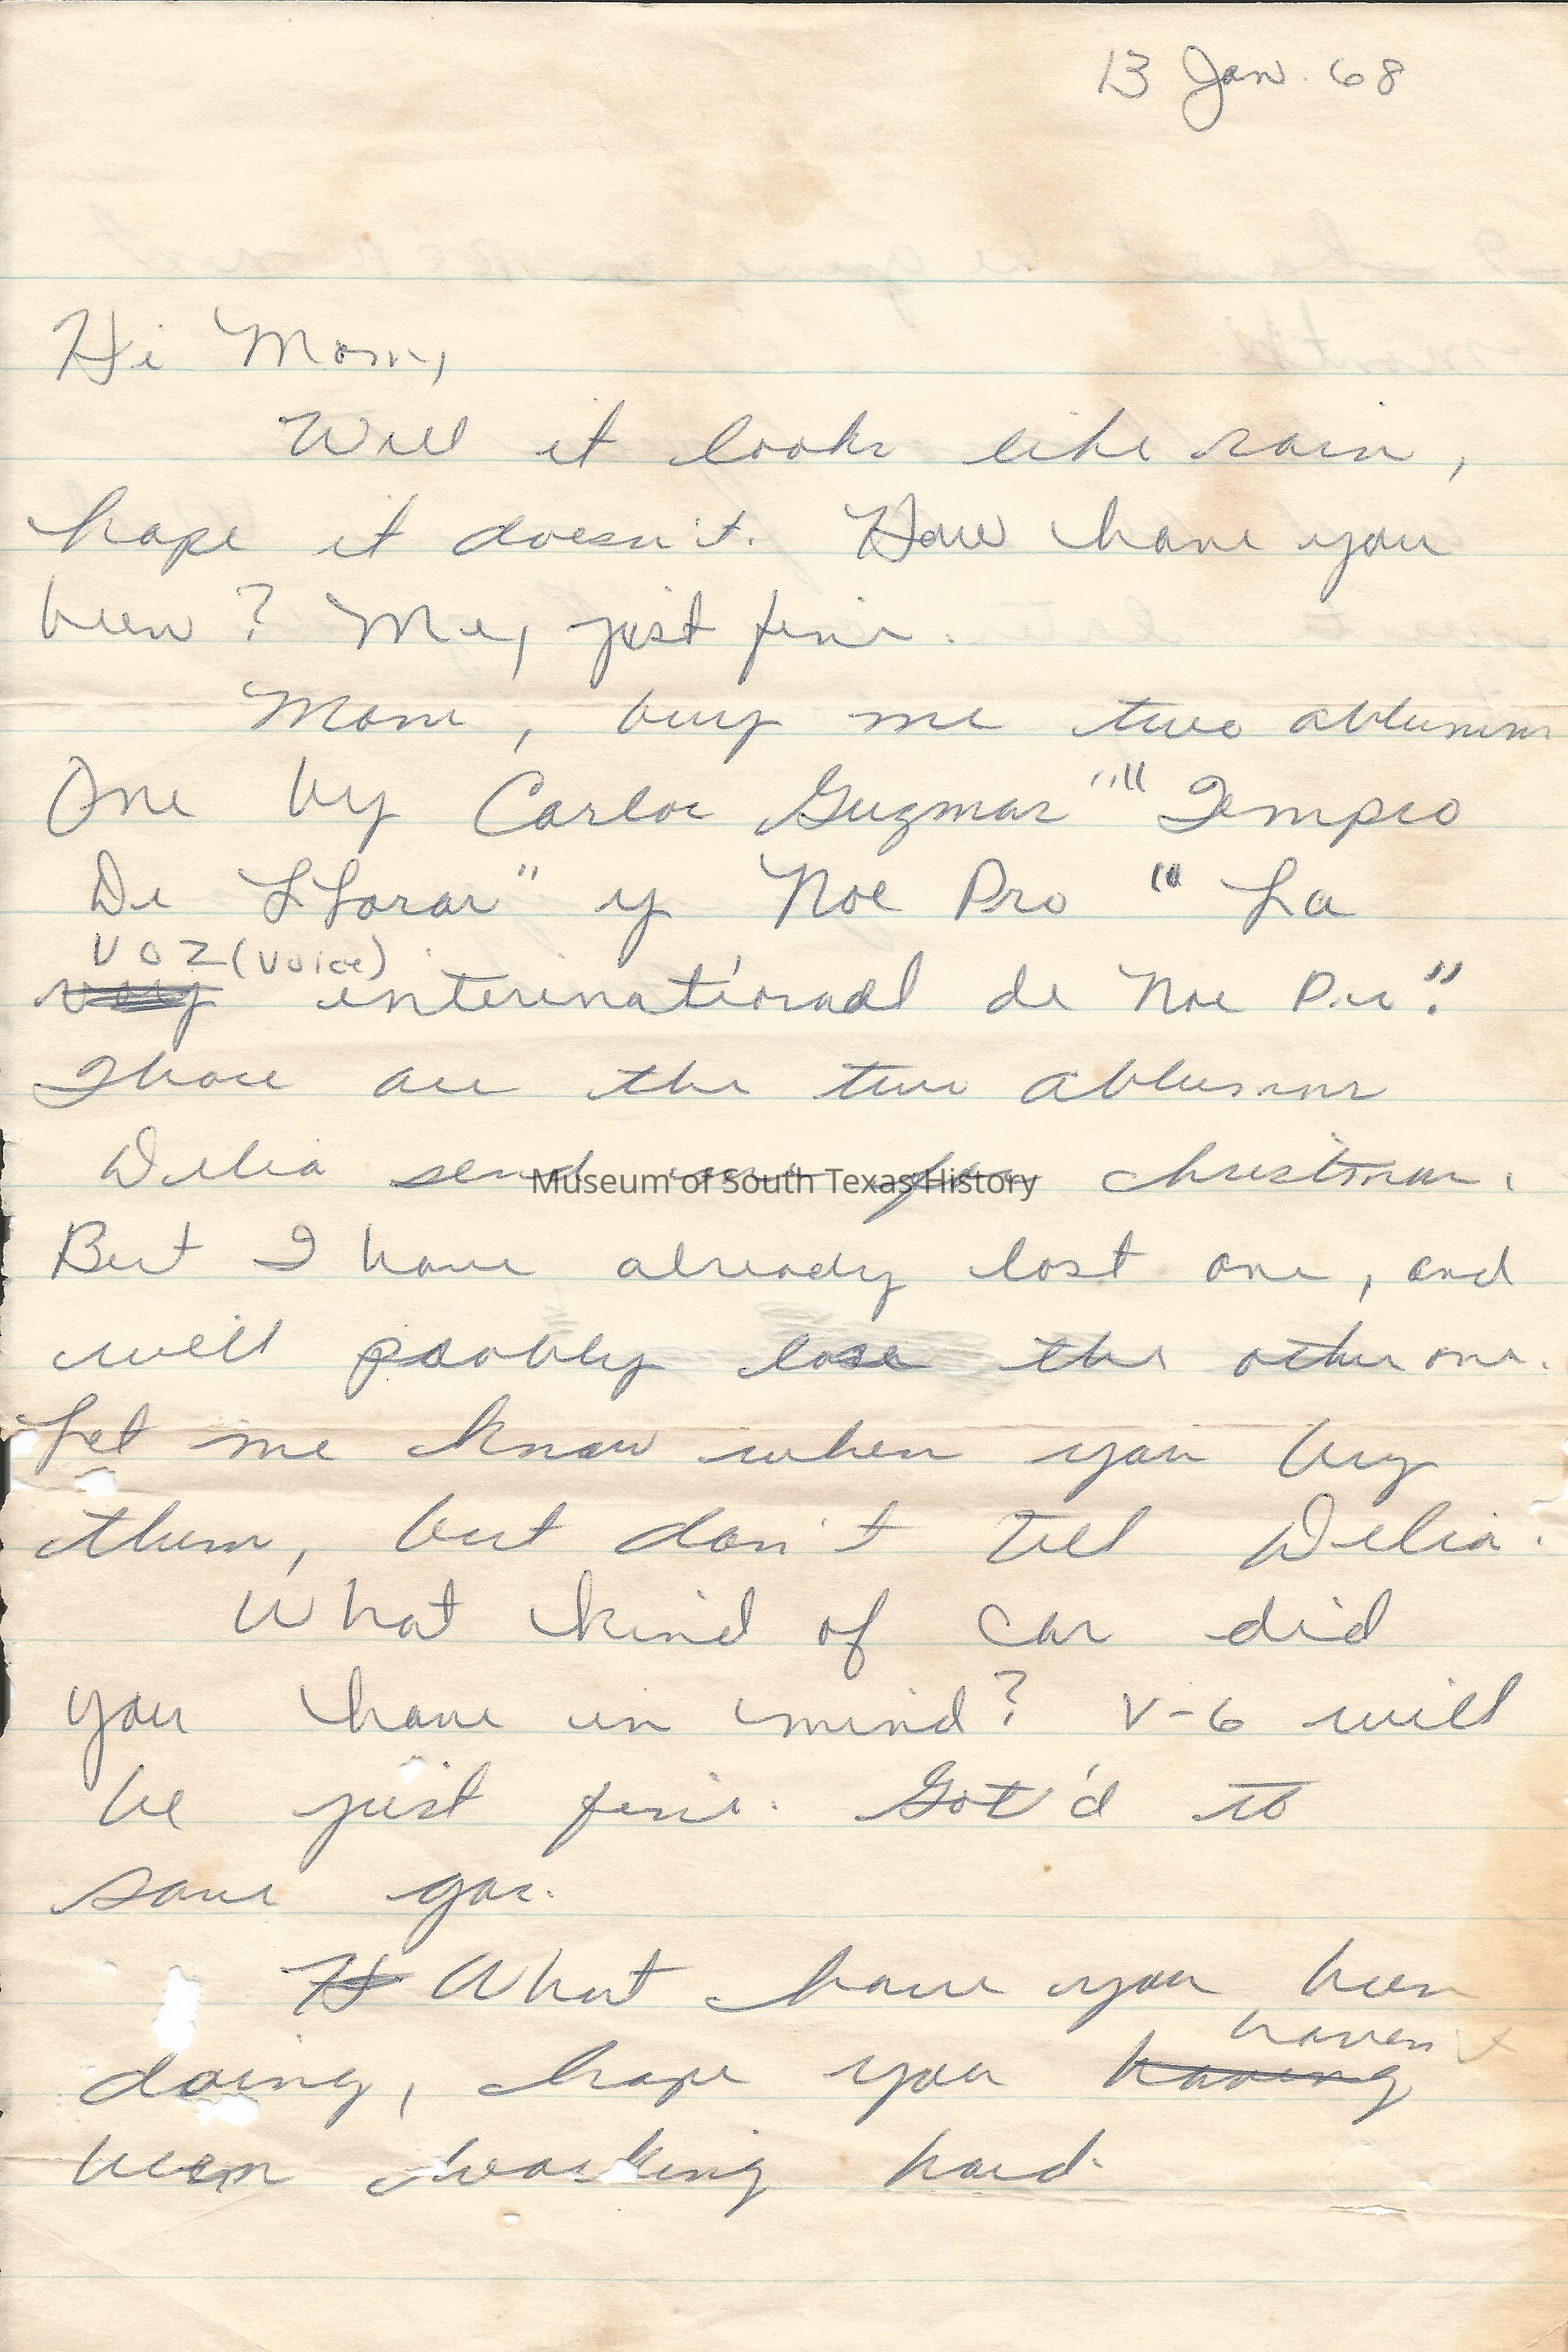 13 Jan. 68
Hi Mom,
Well it looks like rain,
hope it doesn't. How have you
been? Me, just fine.
Mom, buy me two ablumns
One by Carlos Guzman "" Tempio
De LLorar" y Noe Pro "" La
voz (voice)
interinational de Noe Pro".
Those are the two ablumns
Delia send me for christmas.
Museum of South Texas History
But I have already lost one, and
will poobly lose the other one.
Let me know when you buy
them, but don't tell Delia.
What kind of car did
you have in mind? V-6 will
be just fine. Got'd to
save gas.
What have you been
haven't
doing, hope you having
been working hard.